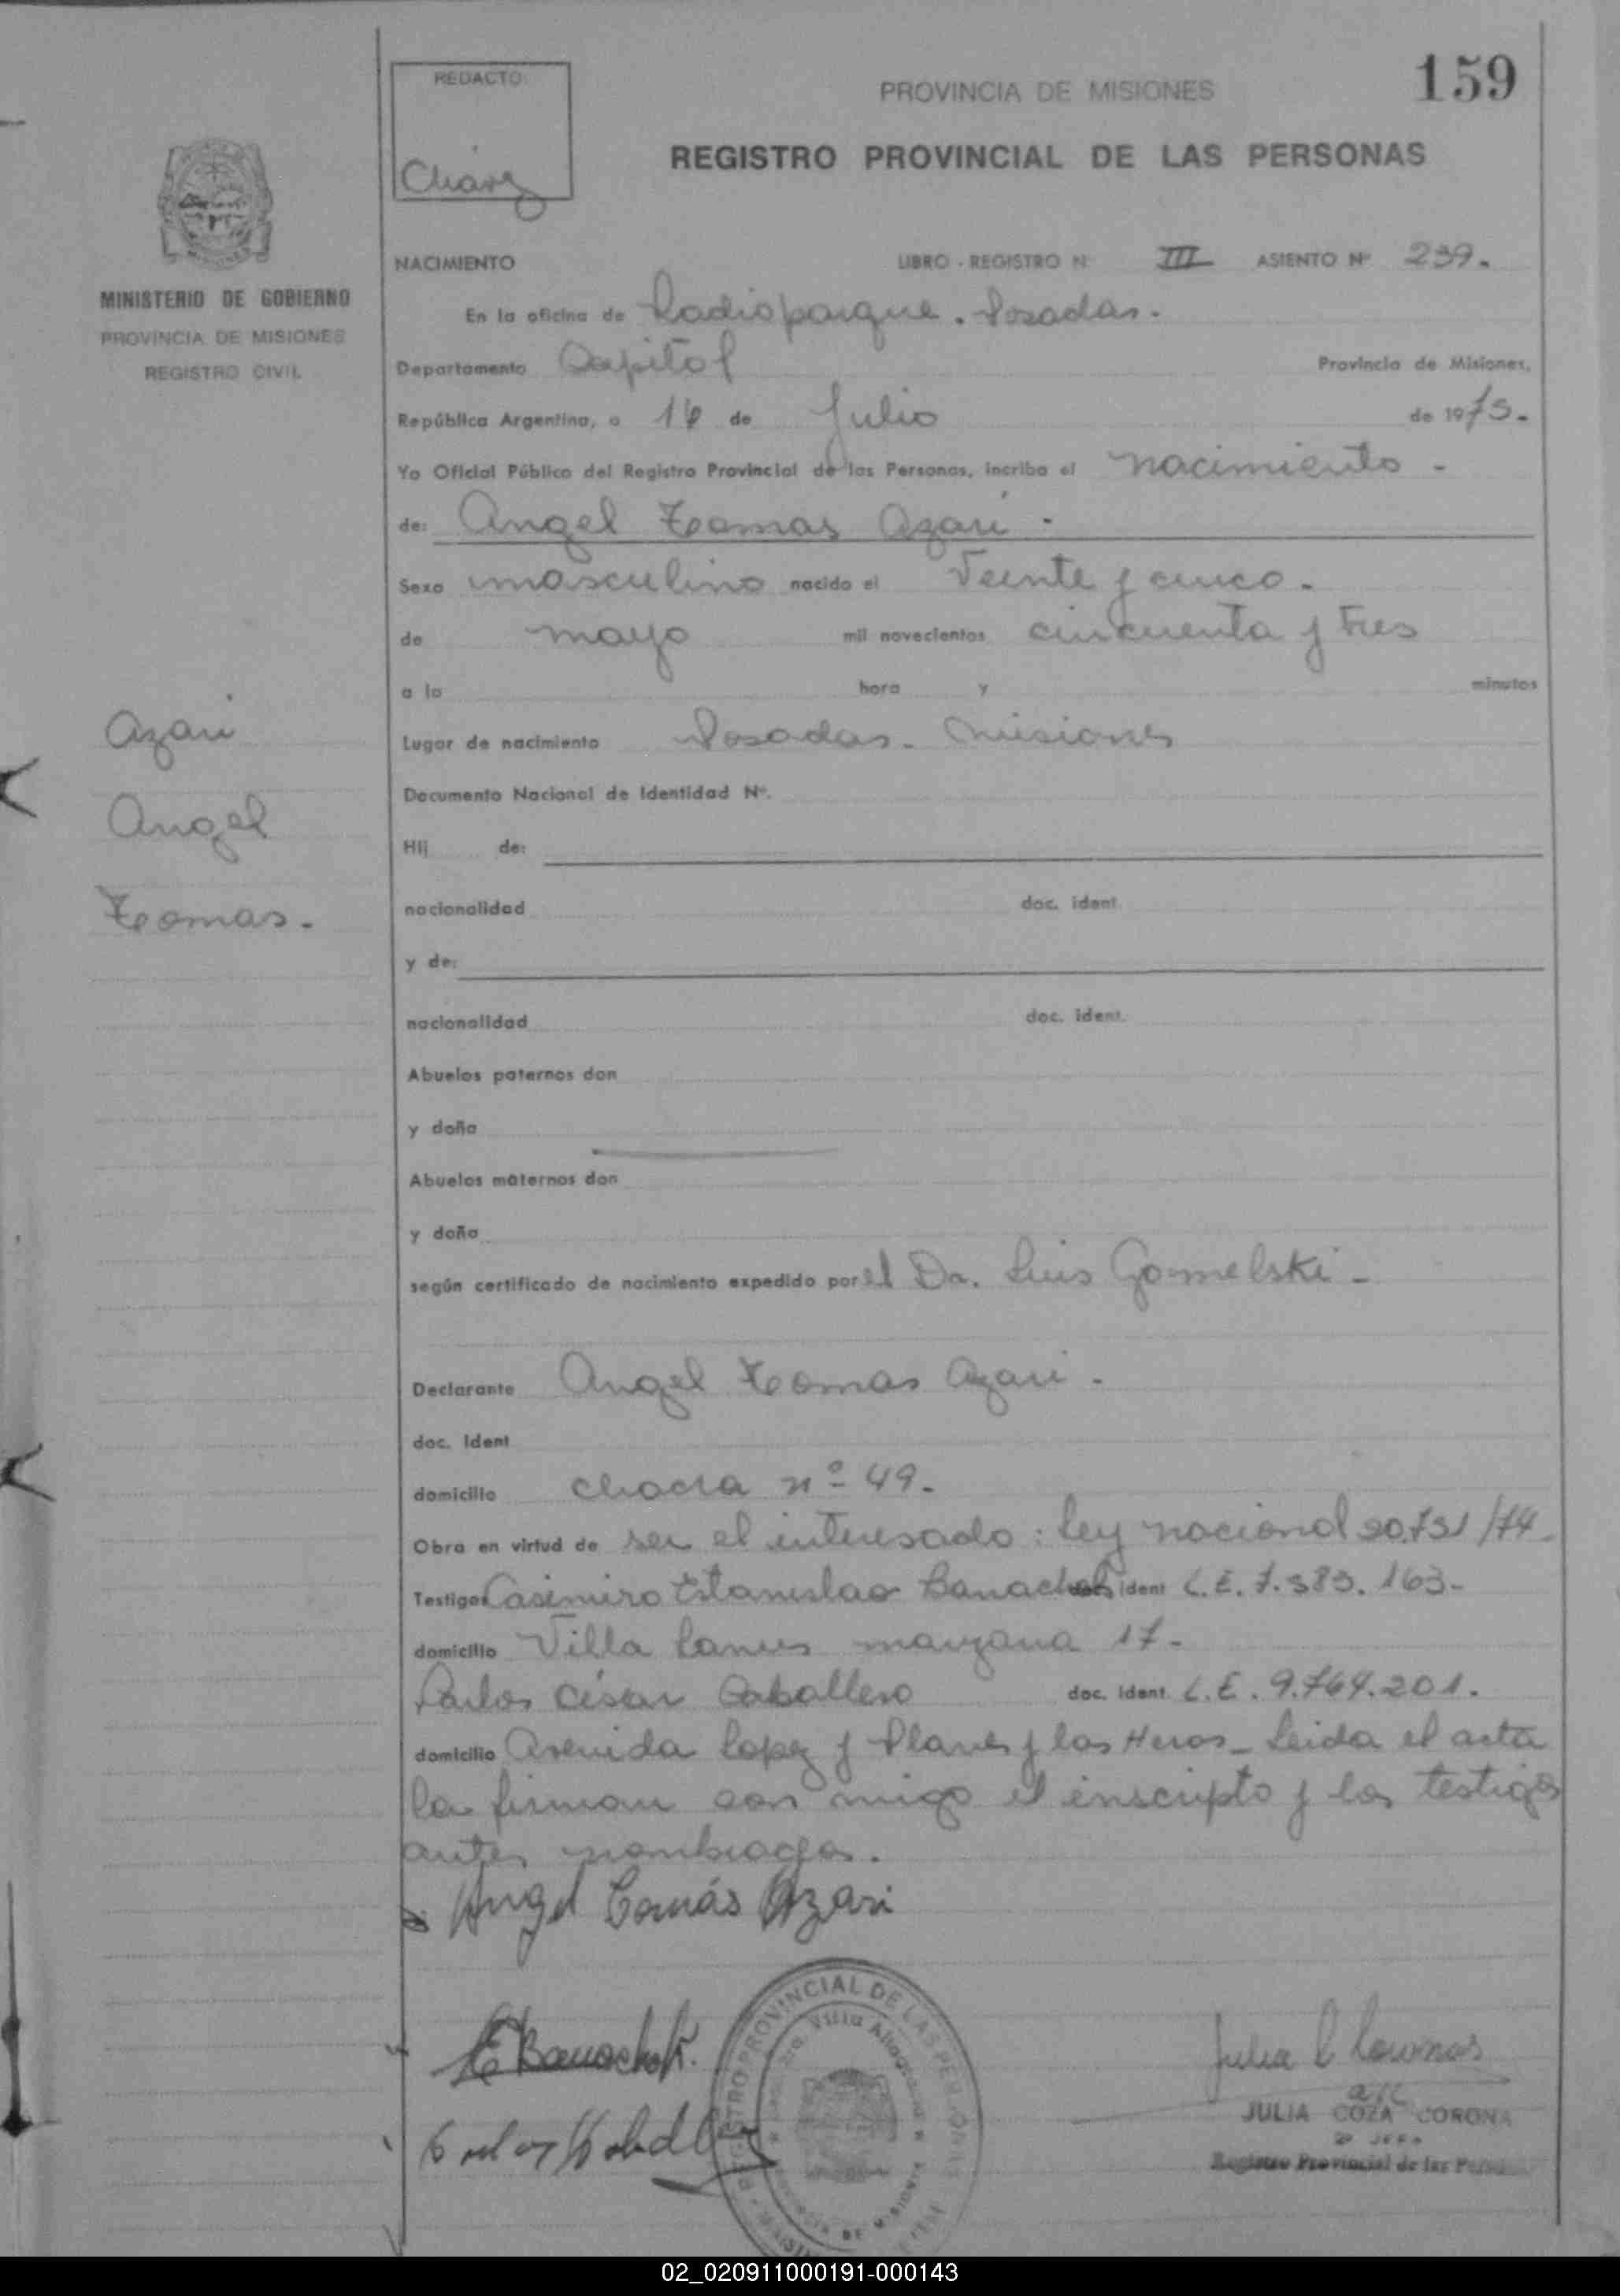 159
REDACTO:
Chavez
PROVINCIA DE MISIONES
REGISTRO PROVINCIAL DE LAS PERSONAS
MINISTERIO DE GOBIERNO
PROVINCIA DE MISIONES
REGISTRO CIVIL
NACIMIENTO LIBRO - REGISTRO Nº III ASIENTO Nº 239.
En la oficina de Radioparque. Posadas.
Departamento Capital Provincia de Misiones,
República Argentina, a 16 de Julio de 1975.
Yo Oficial Público del Registro Provincial de las Personas, inscribo el nacimiento -
de: Angel Tomas Azari -
Sexo masculino nacido el Veinte y cinco.
de mayo mil novecientos cincuenta y tres
a la hora y minutos
Lugar de nacimiento Posadas. Misiones
Azari
Angel
Tomas.
Documento Nacional de Identidad Nº.
Hij de:
nacionalidad doc. ident.
y de:
nacionalidad doc. ident.
Abuelos paternos don
y doña
Abuelos maternos don
y doña
según certificado de nacimiento expedido por el Dr. Luis Gomelski -
Declarante Angel Tomas Azari -
doc. Ident
domicilio chacra nº 49.
Obra en virtud de ser el interesado: Ley nacional 20.751/74.
Testigos Casimiro Estanislao Banachoki doc. ident L.E. 7.383.163-
domicilio Villa Lanus manzana 17-
Carlos César Caballero doc. ident. L.E. 9.764.201.
domicilio Avenida Lopez y Planes y las Heras - Leida el acta
la firman con migo el inscripto y los testigos
antes nombrados.
Angel Tomás Azari
E Banachoki.
REGISTRO PROVINCIAL DE LAS PERSONAS
JULIA COZA CORONA
Registro Provincial de las Personas
02_020911000191-000143